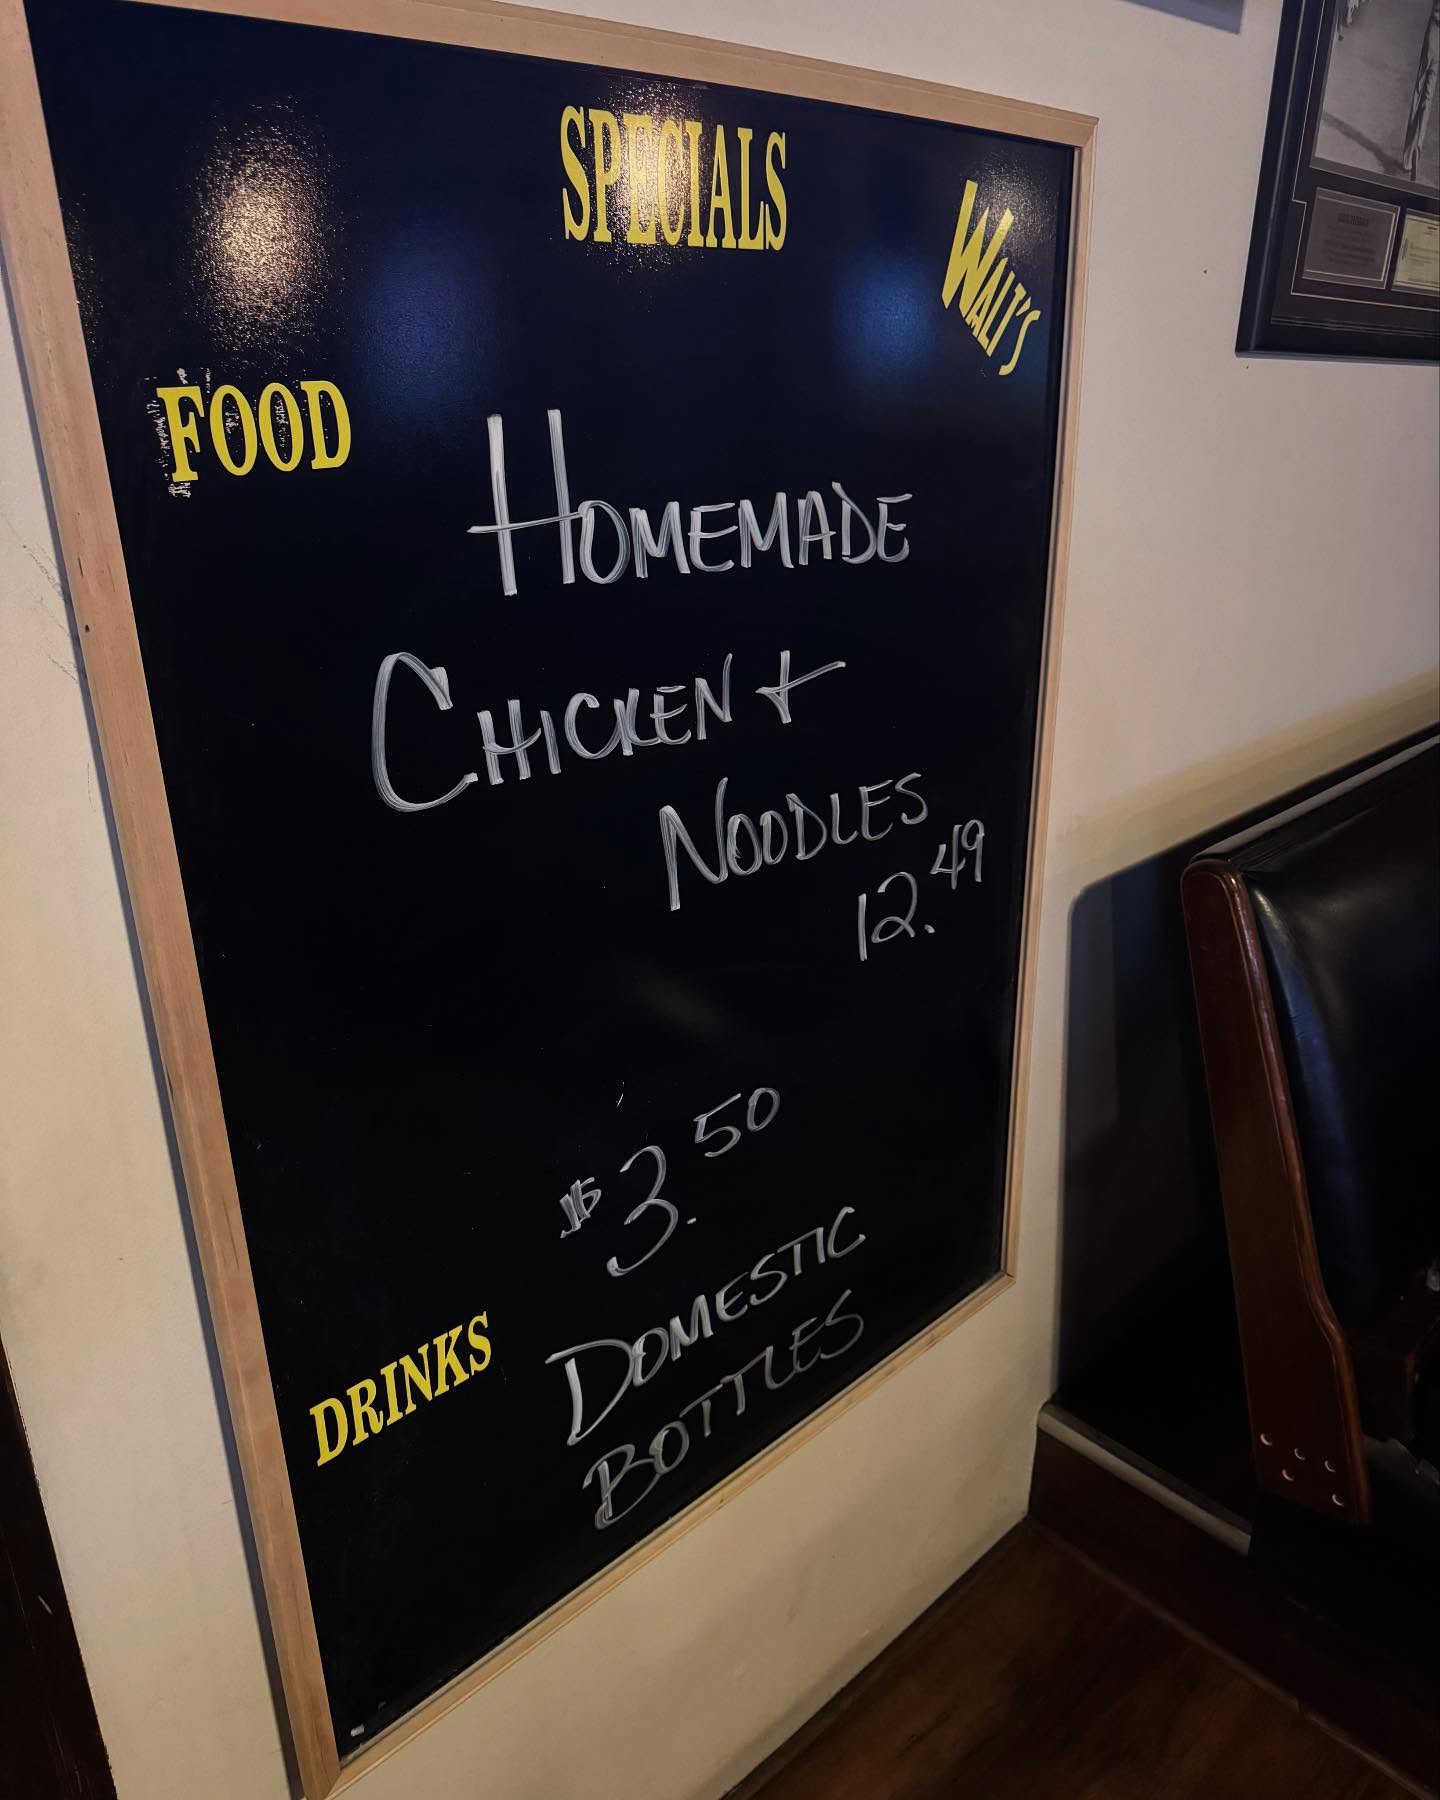 SPECIALS
WALT'S
FOOD
HOMEMADE
CHICKEN +
NOODLES
12.49
$3.50
DRINKS
DOMESTIC
BOTTLES